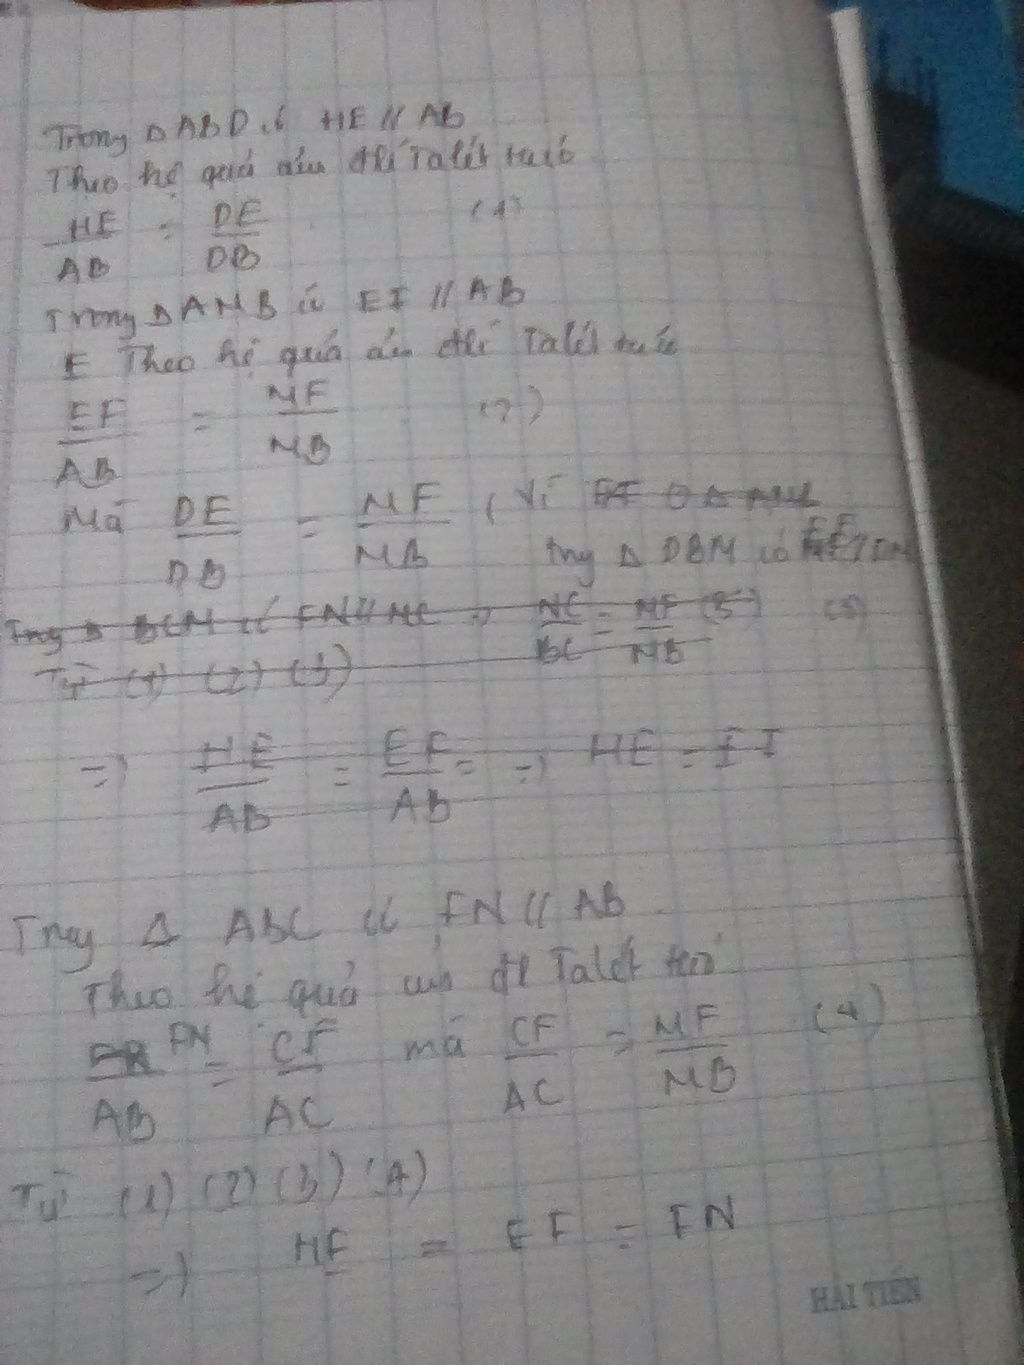 Trong Δ ABD có HE // AB
Theo hệ quả của đlí Talét ta có
HE/AB = DE/DB (1)
Trong Δ AMB có EF // AB
Theo hệ quả của đlí Talét ta có
EF/AB = MF/MB (2)
Mà DE/DB = MF/MB (Vì
Trg Δ DBM có EF // DM
Trg Δ BCM có FN // MC => NC/BC = MF/MB (3) (3)
Từ (1) (2) (3)
=> HE/AB = EF/AB = => HE = EF
Trg Δ ABC có FN // AB
Theo hệ quả của đl Talét ta có
FN/AB = CF/AC mà CF/AC = MF/MB (4)
Từ (1) (2) (3) (4)
=> HE = EF = FN
HẢI TIẾN